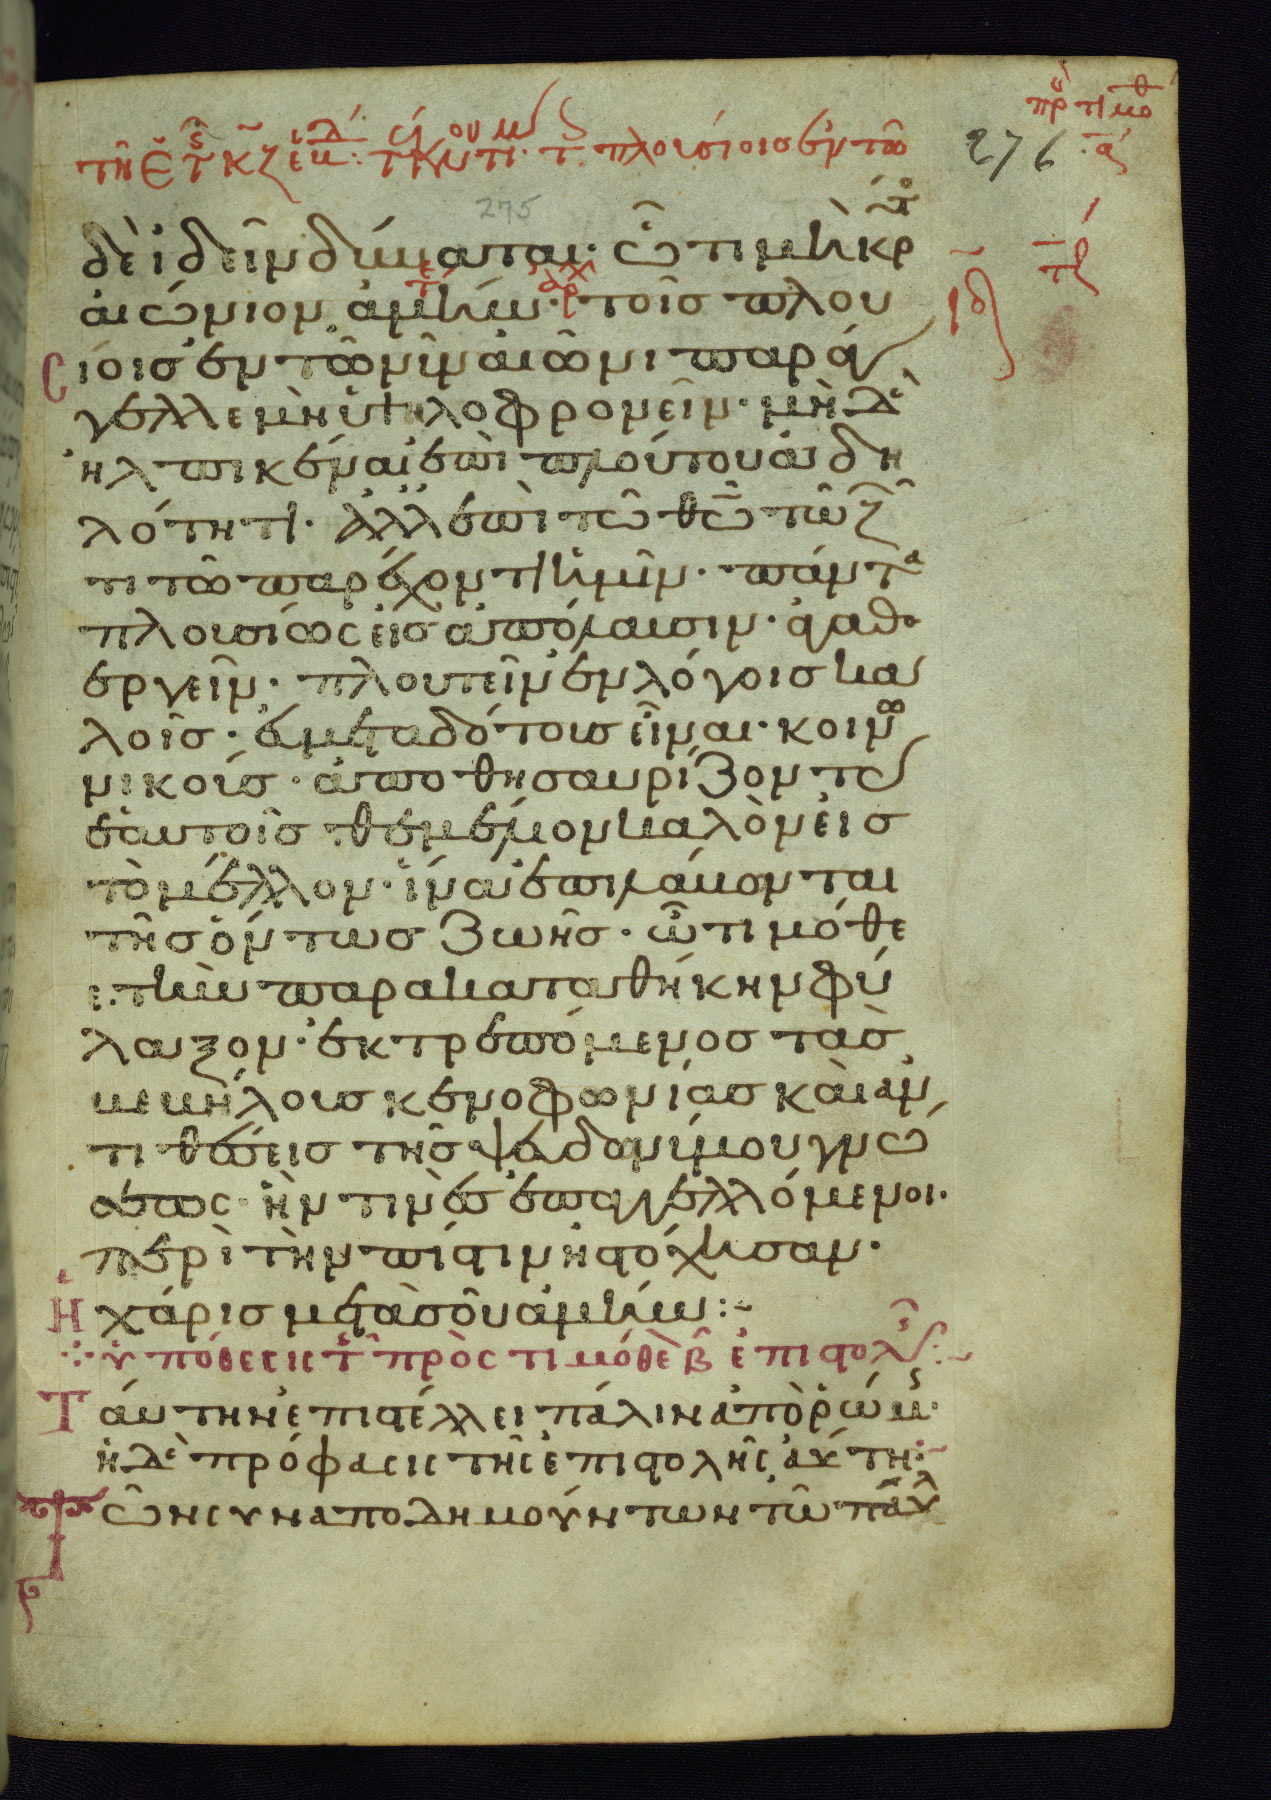 πρ τιμοθ
α
276
τῇ ε τ κζ ἑβδ: τέκνον τι. τ πλουσίοις ἐν τῶ
275
δὲ ἰδεῖν δύναται· ὧ τιμὴ κ κρτο
αἰώνιον ἀμήν· τοῖς πλου
τε αρχ
σίοις ἐν τῶ νῦν αἰῶνι παράγ
γελλε μὴ ὑψηλοφρονεῖν· μηδὲ
ἠλπικέναι ἐπὶ πλούτου ἀδη
λότητι· ἀλλ ἐπὶ τῶ θῶ τῶ ζῶ
τι τῶ παρέχοντι ἡμῖν· πάντα
πλουσίως εἰς ἀπόλαυσιν· ἀγαθο
εργεῖν· πλουτεῖν ἐν λόγοις κα
λοῖς· εὐμεταδότους εἶναι· κοινω
νικούς· ἀποθησαυρίζοντες
ἑαυτοῖς θεμέλιον καλὸν εἰς
τὸ μέλλον· ἵνα ἐπιλάβωνται
τῆς ὄντως ζωῆς· ὦ τιμόθε
ε· τὴν παρακαταθήκην φύ
λαξον· ἐκτρεπόμενος τὰς
βεβήλους κενοφωνίας καὶ ἀν
τιθέσεις τῆς ψευδονύμου γνώ
σεως· ἥν τινὲς ἐπαγγελλόμενοι·
περὶ τὴν πίστιν ἠστόχησαν·
Ἡ χάρις μετὰ σοῦ ἀμήν:~
ὑπόθεσις τῆς πρὸς τιμόθε β ἐπιστολῆς:~
Ταύτην ἐπιστέλλει πάλιν ἀπὸ ῥώμης·
ἡ δὲ πρόφασις τῆς ἐπιστολῆς αὕτη:~
Τῶν συναποδημούντων τῶ παύλ